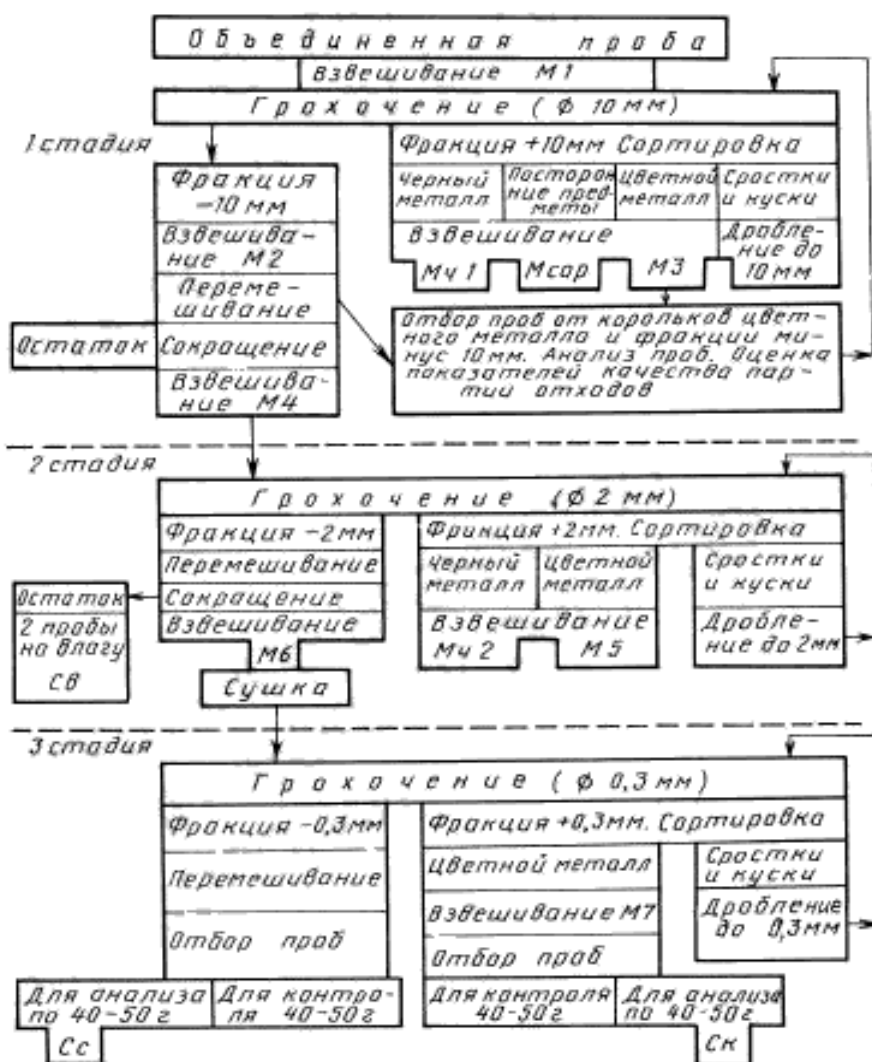 Объединенная проба
Взвешивание М1
Грохочение (ϕ 10 мм)
1 стадия
Фракция
-10 мм
Взвешива-
ние М2
Переме-
шивание
Остаток
Сокращение
Взвешива-
ние М4
Фракция +10мм Сортировка
Черный
металл
Посторон-
ние пред-
меты
Цветной
металл
Сростки
и куски
Взвешивание
Дробле-
ние до
10 мм
Мч 1
Мсор
М3
Отбор проб от корольков цвет-
ного металла и фракции ми-
нус 10мм. Анализ проб. Оценка
показателей качества пар-
тий отходов
2 стадия
Грохочение (ϕ 2 мм)
Фракция -2мм
Перемешивание
Остаток
Сокращение
2 пробы
на влагу
Взвешивание
Св
М6
Сушка
Фрикция +2мм. Сортировка
Черный
металл
Цветной
металл
Сростки
и куски
Взвешивание
Дробле-
ние до 2мм
Мч 2
М5
3 стадия
Грохочение (ϕ 0,3 мм)
Фракция -0,3мм
Перемешивание
Отбор проб
Для анализа
по 40-50 г
Для контро-
ля 40-50г
Сс
Фракция +0,3мм. Сортировка
Цветной металл
Сростки
и куски
Взвешивание М7
Дробление
до 0,3мм
Отбор проб
Для контроля
40-50г
Для анализа
по 40-50г
Ск